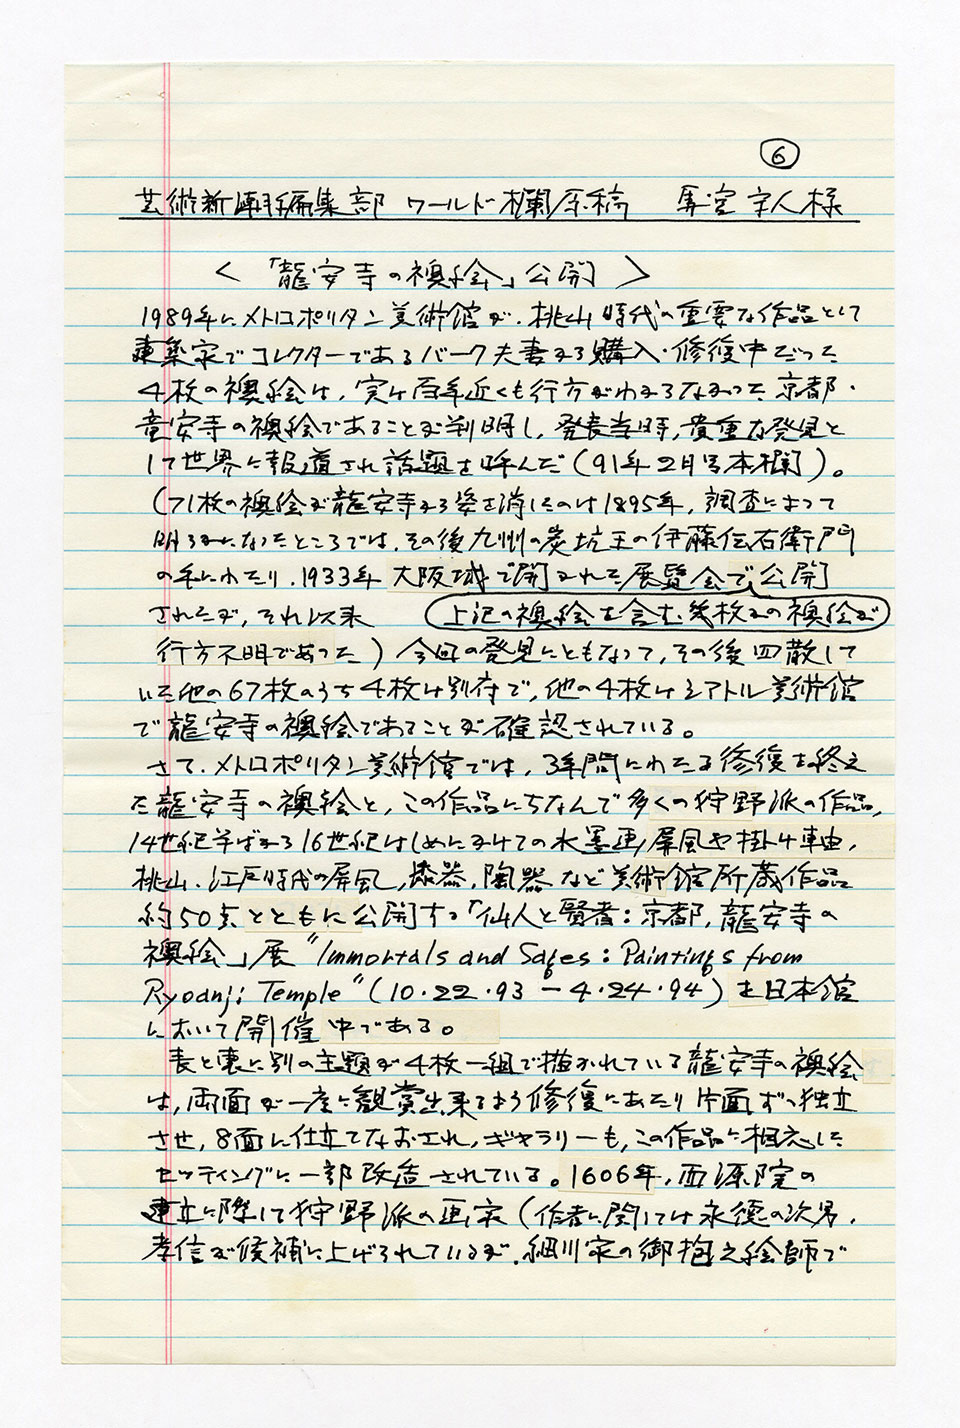 ⑥
芸術新潮編集部 ワールド欄原稿 馬宮宗人様
<「龍安寺の襖絵」公開>
1989年にメトロポリタン美術館が、桃山時代の重要な作品として
建築家でコレクターであるバーク夫妻から購入・修復中だった
4枚の襖絵は、実は百年近くも行方がわからなかった京都・
竜安寺の襖絵であることが判明し、発表当時、貴重な発見と
して世界に報道され話題を呼んだ(91年2月号本欄)。
(71枚の襖絵が龍安寺から姿を消したのは1895年、調査によって
明らかになったところでは、その後九州の炭坑王の伊藤伝右衛門
の手にわたり、1933年大阪城で開かれた展覧会で公開
されたが、それ以来 上記の襖絵を含む幾枚かの襖絵が
行方不明であった)今回の発見にともなって、その後四散して
いた他の67枚のうち4枚は別府で、他の4枚はシアトル美術館
で龍安寺の襖絵であることが確認されている。
さて、メトロポリタン美術館では、3年間にわたる修復を終え
た龍安寺の襖絵と、この作品にちなんで多くの狩野派の作品、
14世紀半ばから16世紀はじめにかけての水墨画、屏風や掛け軸、
桃山、江戸時代の屏風、漆器、陶器など美術館所蔵作品
約50点とともに公開する「仙人と賢者:京都、龍安寺の
襖絵」展"Immortals and Sages: Paintings from
Ryoanji Temple"(10・22・93–4・24・94)を日本館
において開催中である。
表と裏に別の主題が4枚一組で描かれている龍安寺の襖絵
は、両面が一度に観賞出来るよう修復にあたり片面ずつ独立
させ、8面に仕立てなおされ、ギャラリーも、この作品に相応した
セッティングに一部改造されている。1606年、西源院の
建立に際して狩野派の画家(作者に関しては永徳の次男、
孝信が候補に上げられているが、細川家の御抱え絵師で